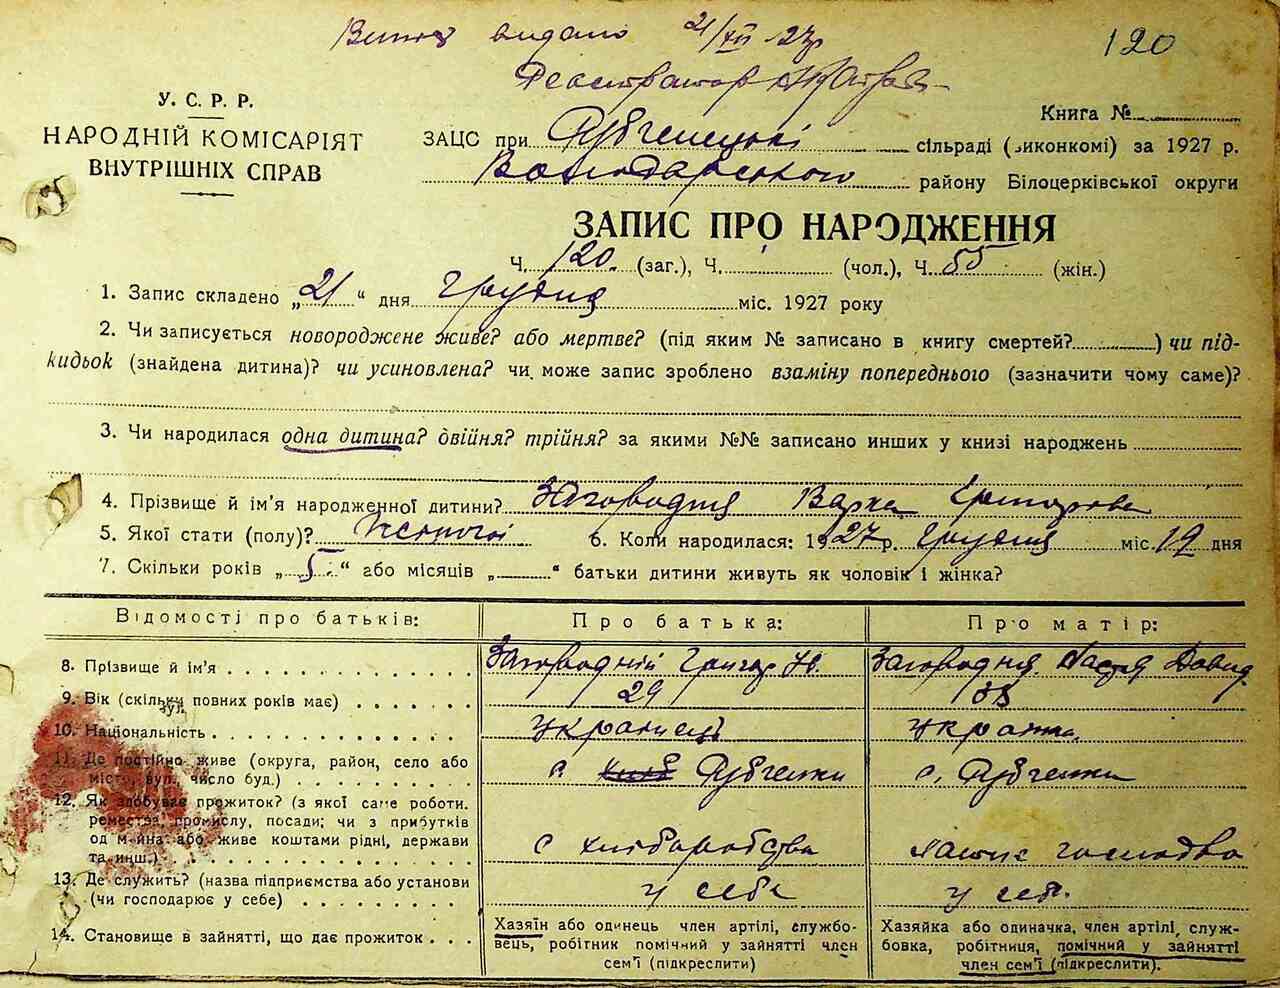 Витяг видано 21/XII 27р
120
Реєстратор
У. С. Р. Р.
НАРОДНІЙ КОМІСАРІЯТ
ВНУТРІШНІХ СПРАВ
Книга №
ЗАЦС при Рубченецькі сільраді (виконкомі) за 1927 р.
Володарського району Білоцерківської округи
ЗАПИС ПРО НАРОДЖЕННЯ
Ч. 120. (заг.), Ч. (чол.), Ч. 55 (жін.)
1. Запис складено „21“ дня Грудня міс. 1927 року
2. Чи записується новороджене живе? або мертве? (під яким № записано в книгу смертей?) чи під-
кидьок (знайдена дитина)? чи усиновлена? чи може запис зроблено взаміну попереднього (зазначити чому саме)?
3. Чи народилася одна дитина? двійня? трійня? за якими №№ записано инших у книзі народжень
4. Прізвище й ім'я народженної дитини? Загородня Варка Григорова
5. Якої стати (полу)? Жіночої 6. Коли народилася: 1927 р. Грудня міс. 19 дня
7. Скільки років „5“ або місяців „“ батьки дитини живуть як чоловік і жінка?
Відомості про батьків: Про батька: Про матір:
8. Прізвище й ім'я Загородній Григор Ів. Загородня Настя Давид.
9. Вік (скільки повних років має) 29
10. Національність українець українка
11. Де постійно живе (округа, район, село або
місто, вул. число буд.) с Рубченки с. Рубченки
12. Як здобуває прожиток? (з якої саме роботи.
ремества, промислу, посади; чи з прибутків
од майна або живе коштами рідні, держави
та инш.) с хліборобства хатнє господво
13. Де служить? (назва підприємства або установи
(чи господарює у себе) у себе у себе.
14. Становище в зайнятті, що дає прожиток
Хазяїн або одинець член артілі, службо-
вець, робітник помічний у зайнятті член
сем'ї (підкреслити)
Хазяйка або одиначка, член артілі, служ-
бовка, робітниця, помічний у зайнятті
член сем'ї (підкреслити).